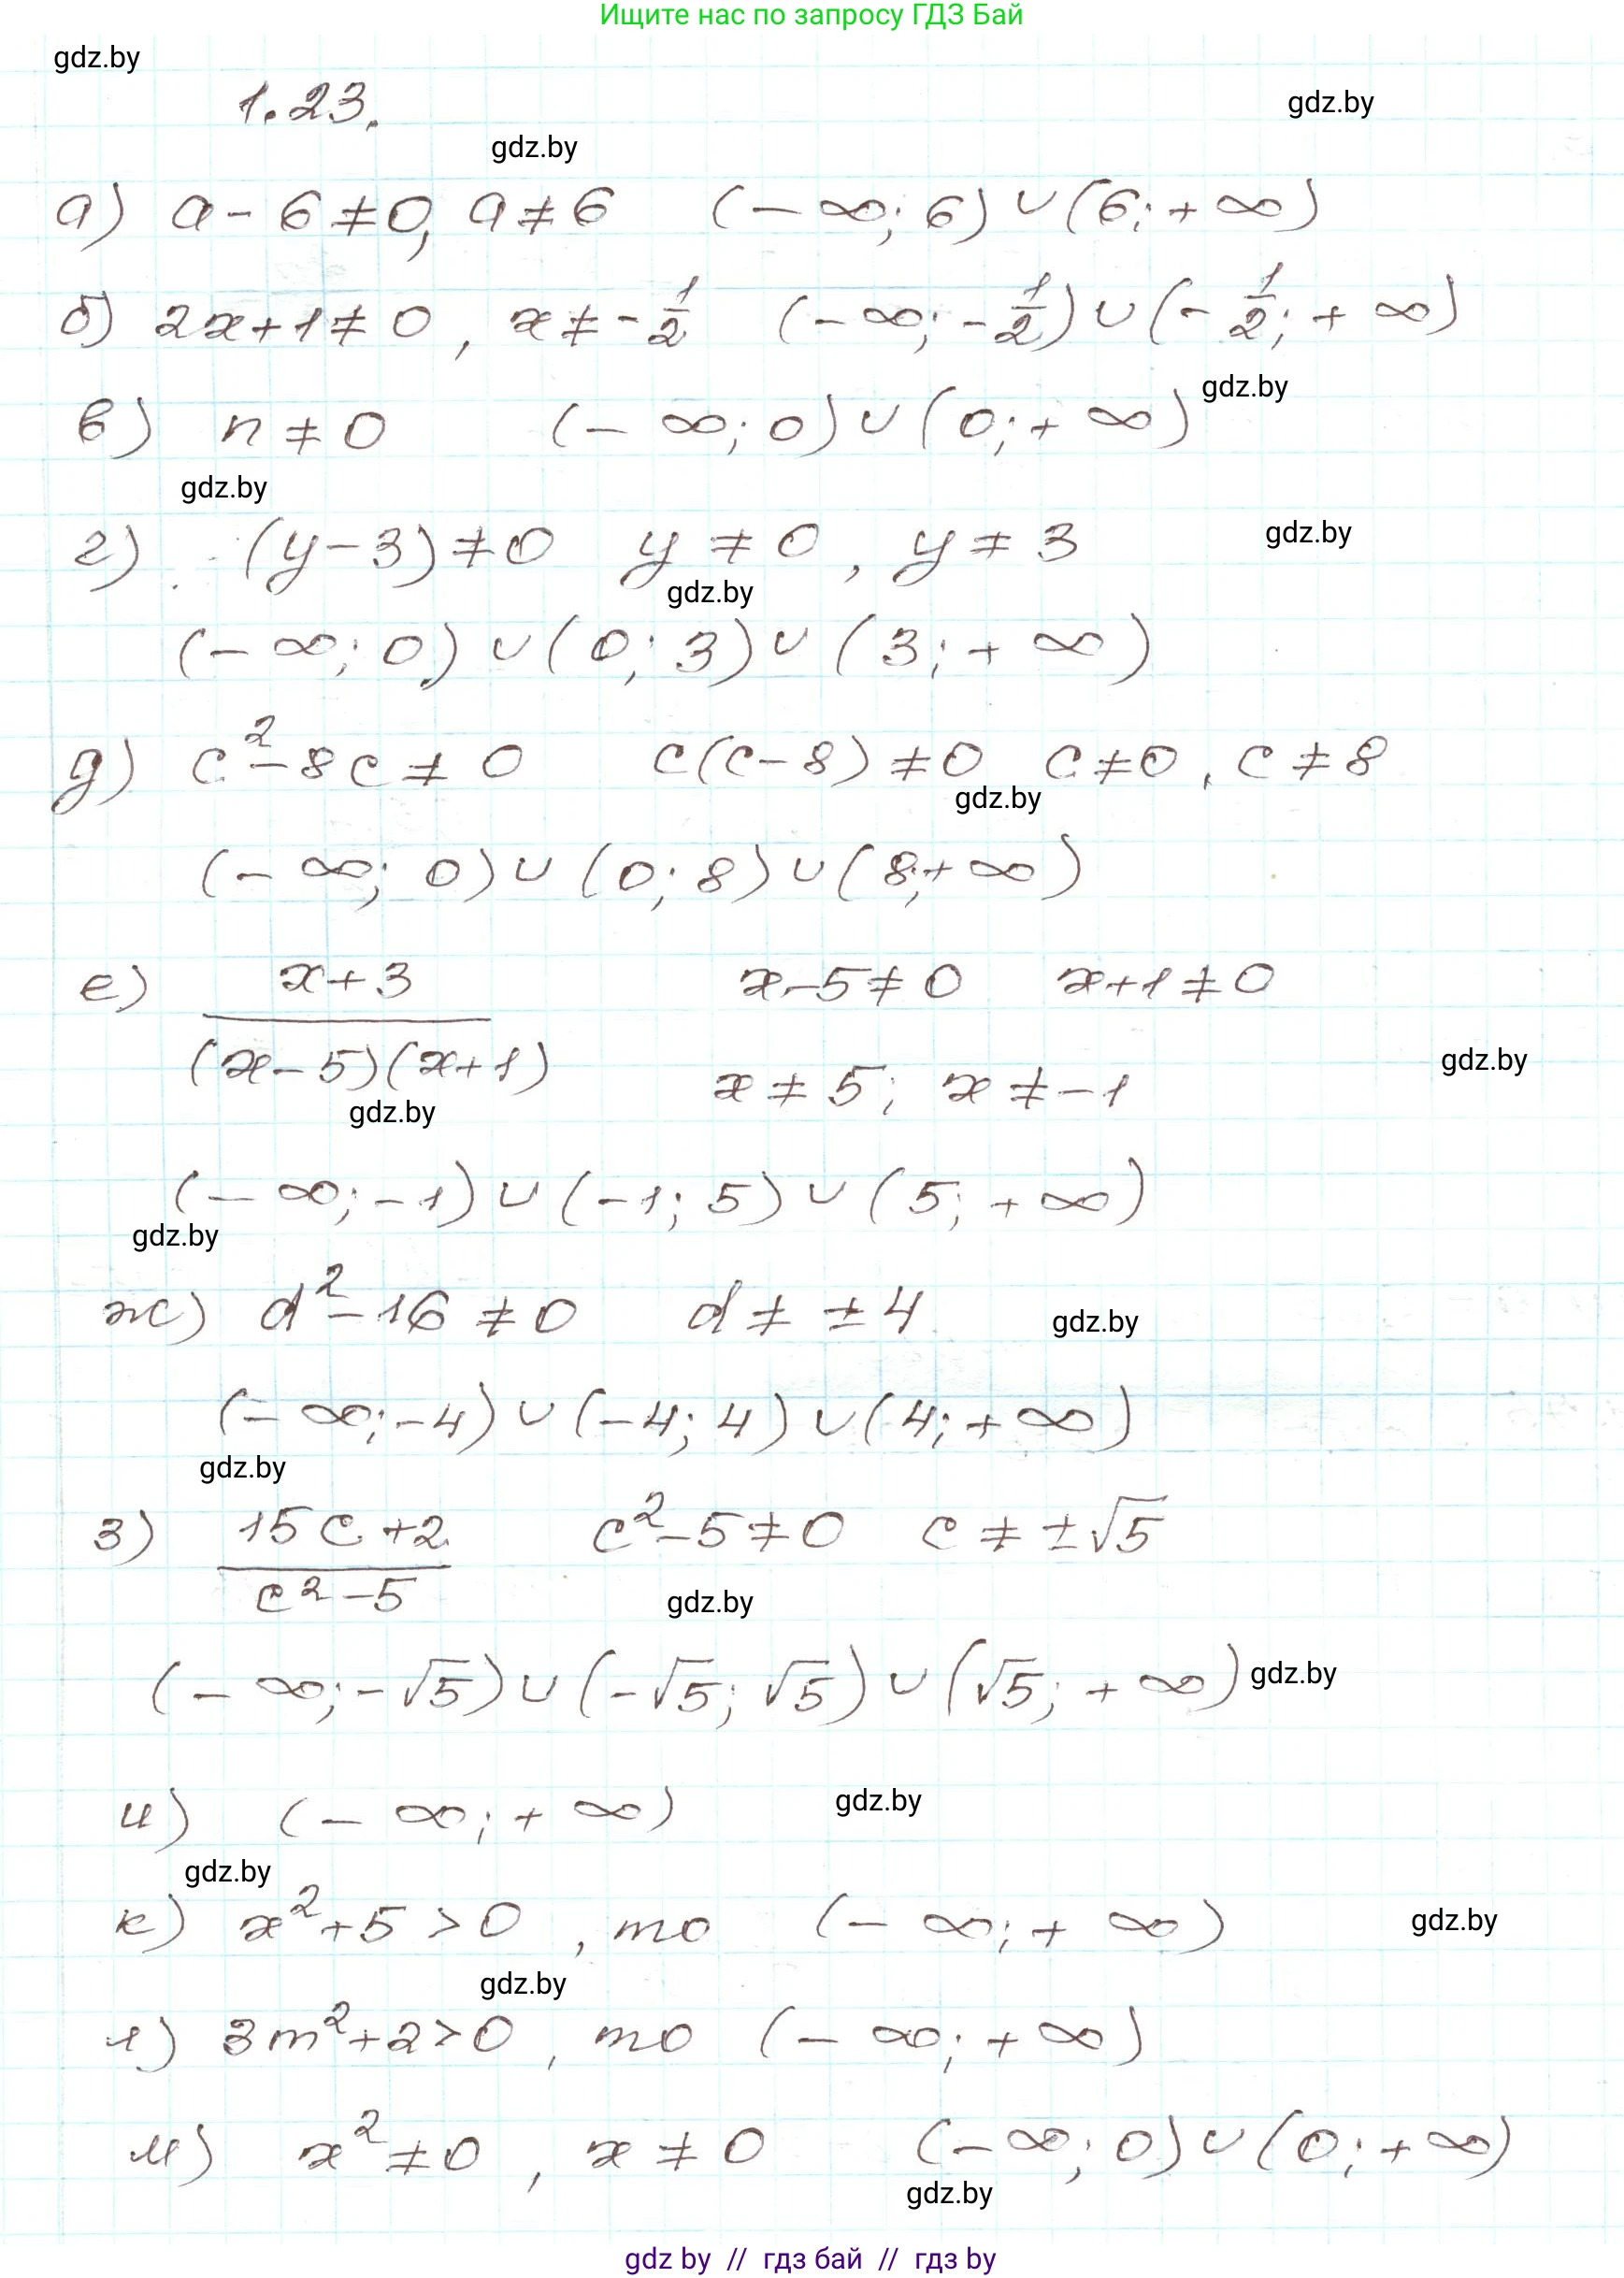 Ищите нас по запросу ГДЗ Бай
gdz.by
1.23.
gdz.by
gdz.by
а) a - 6 ≠ 0, a ≠ 6 (- ∞; 6) ∪ (6; + ∞)
б) 2x + 1 ≠ 0, x ≠ - 1/2 (- ∞; - 1/2) ∪ (- 1/2; + ∞)
gdz.by
в) n ≠ 0 (- ∞; 0) ∪ (0; + ∞)
gdz.by
г) (y - 3) ≠ 0 y ≠ 0, y ≠ 3
gdz.by
gdz.by
(- ∞; 0) ∪ (0; 3) ∪ (3; + ∞)
д) c² - 8c ≠ 0 c(c - 8) ≠ 0 c ≠ 0, c ≠ 8
gdz.by
(- ∞; 0) ∪ (0; 8) ∪ (8; + ∞)
е) (x + 3)/((x - 5)(x + 1)) x - 5 ≠ 0 x + 1 ≠ 0
x ≠ 5; x ≠ - 1
gdz.by
gdz.by
(- ∞; - 1) ∪ (- 1; 5) ∪ (5; + ∞)
gdz.by
ж) d² - 16 ≠ 0 d ≠ ± 4
gdz.by
(- ∞; - 4) ∪ (- 4; 4) ∪ (4; + ∞)
gdz.by
з) (15c + 2)/(c² - 5) c² - 5 ≠ 0 c ≠ ± √5
gdz.by
(- ∞; - √5) ∪ (- √5; √5) ∪ (√5; + ∞)
gdz.by
и) (- ∞; + ∞)
gdz.by
gdz.by
к) x² + 5 > 0, то (- ∞; + ∞)
gdz.by
gdz.by
л) 3m² + 2 > 0, то (- ∞; + ∞)
м) x² ≠ 0, x ≠ 0 (- ∞; 0) ∪ (0; + ∞)
gdz.by
gdz by // гдз бай // гдз by